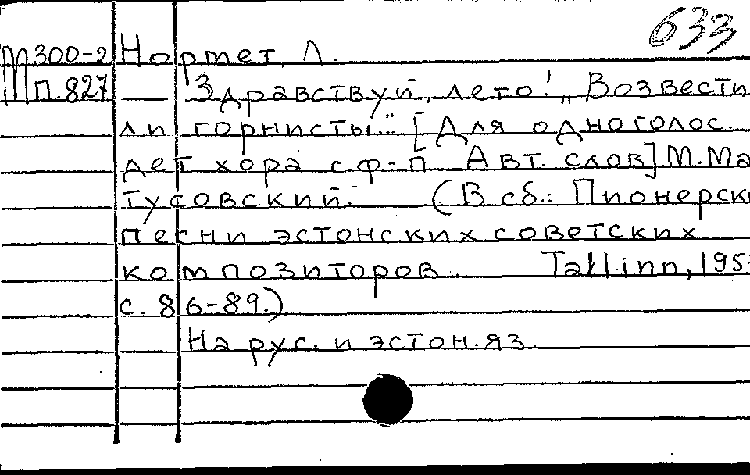 633
М300-2 Нормет, Л.
Мп.827 "Здравствуй, лето!„ Возвести
ли горнисты..." [Для одноголос.
дет хора с ф-п. Авт. слов] М. Ма
тусовский. (В сб.: Пионерски
песни эстонских советских
композиторов. Tallinn, 195
с. 86-89.)
На рус. и эстон. яз.